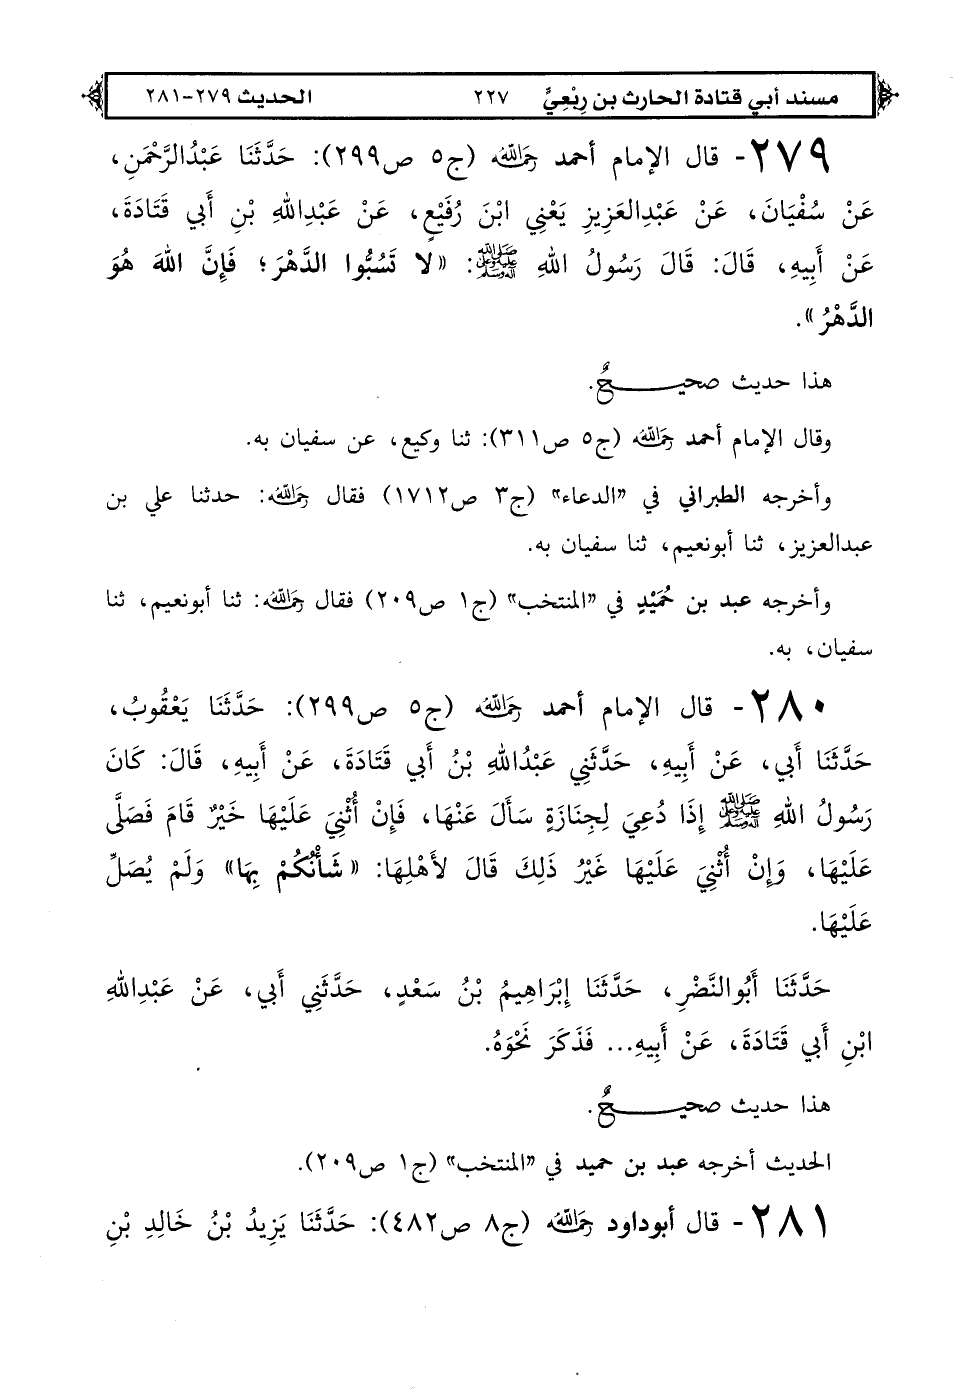 مسند أبي قتادة الحارث بن رِبْعِيٍّ ٢٢٧ الحديث ٢٧٩-٢٨١
٢٧٩- قال الإمام أحمد رَحِمَهُ اللهُ (ج٥ ص٢٩٩): حَدَّثَنَا عَبْدُالرَّحْمَنِ،
عَنْ سُفْيَانَ، عَنْ عَبْدِالعَزِيزِ يَعْنِي ابْنَ رُفَيْعٍ، عَنْ عَبْدِاللهِ بْنِ أَبِي قَتَادَةَ،
عَنْ أَبِيهِ، قَالَ: قَالَ رَسُولُ اللهِ ﷺ: «لَا تَسُبُّوا الدَّهْرَ؛ فَإِنَّ اللهَ هُوَ
الدَّهْرُ».
هذا حديث صحيـــــحٌ.
وقال الإمام أحمد رَحِمَهُ اللهُ (ج٥ ص٣١١): ثنا وكيع، عن سفيان به.
وأخرجه الطبراني في «الدعاء» (ج٣ ص١٧١٢) فقال رَحِمَهُ اللهُ: حدثنا علي بن
عبدالعزيز، ثنا أبونعيم، ثنا سفيان به.
وأخرجه عبد بن حُمَيْدٍ في «المنتخب» (ج١ ص٢٠٩) فقال رَحِمَهُ اللهُ: ثنا أبونعيم، ثنا
سفيان، به.
٢٨٠- قال الإمام أحمد رَحِمَهُ اللهُ (ج٥ ص٢٩٩): حَدَّثَنَا يَعْقُوبُ،
حَدَّثَنَا أَبِي، عَنْ أَبِيهِ، حَدَّثَنِي عَبْدُاللهِ بْنُ أَبِي قَتَادَةَ، عَنْ أَبِيهِ، قَالَ: كَانَ
رَسُولُ اللهِ ﷺ إِذَا دُعِيَ لِجِنَازَةٍ سَأَلَ عَنْهَا، فَإِنْ أُثْنِيَ عَلَيْهَا خَيْرٌ قَامَ فَصَلَّى
عَلَيْهَا، وَإِنْ أُثْنِيَ عَلَيْهَا غَيْرُ ذَلِكَ قَالَ لأَهْلِهَا: «شَأْنُكُمْ بِهَا» وَلَمْ يُصَلِّ
عَلَيْهَا.
حَدَّثَنَا أَبُوالنَّضْرِ، حَدَّثَنَا إِبْرَاهِيمُ بْنُ سَعْدٍ، حَدَّثَنِي أَبِي، عَنْ عَبْدِاللهِ
ابْنِ أَبِي قَتَادَةَ، عَنْ أَبِيهِ... فَذَكَرَ نَحْوَهُ.
هذا حديث صحيـــــحٌ.
الحديث أخرجه عبد بن حميد في «المنتخب» (ج١ ص٢٠٩).
٢٨١- قال أبوداود رَحِمَهُ اللهُ (ج٨ ص٤٨٢): حَدَّثَنَا يَزِيدُ بْنُ خَالِدِ بْنِ